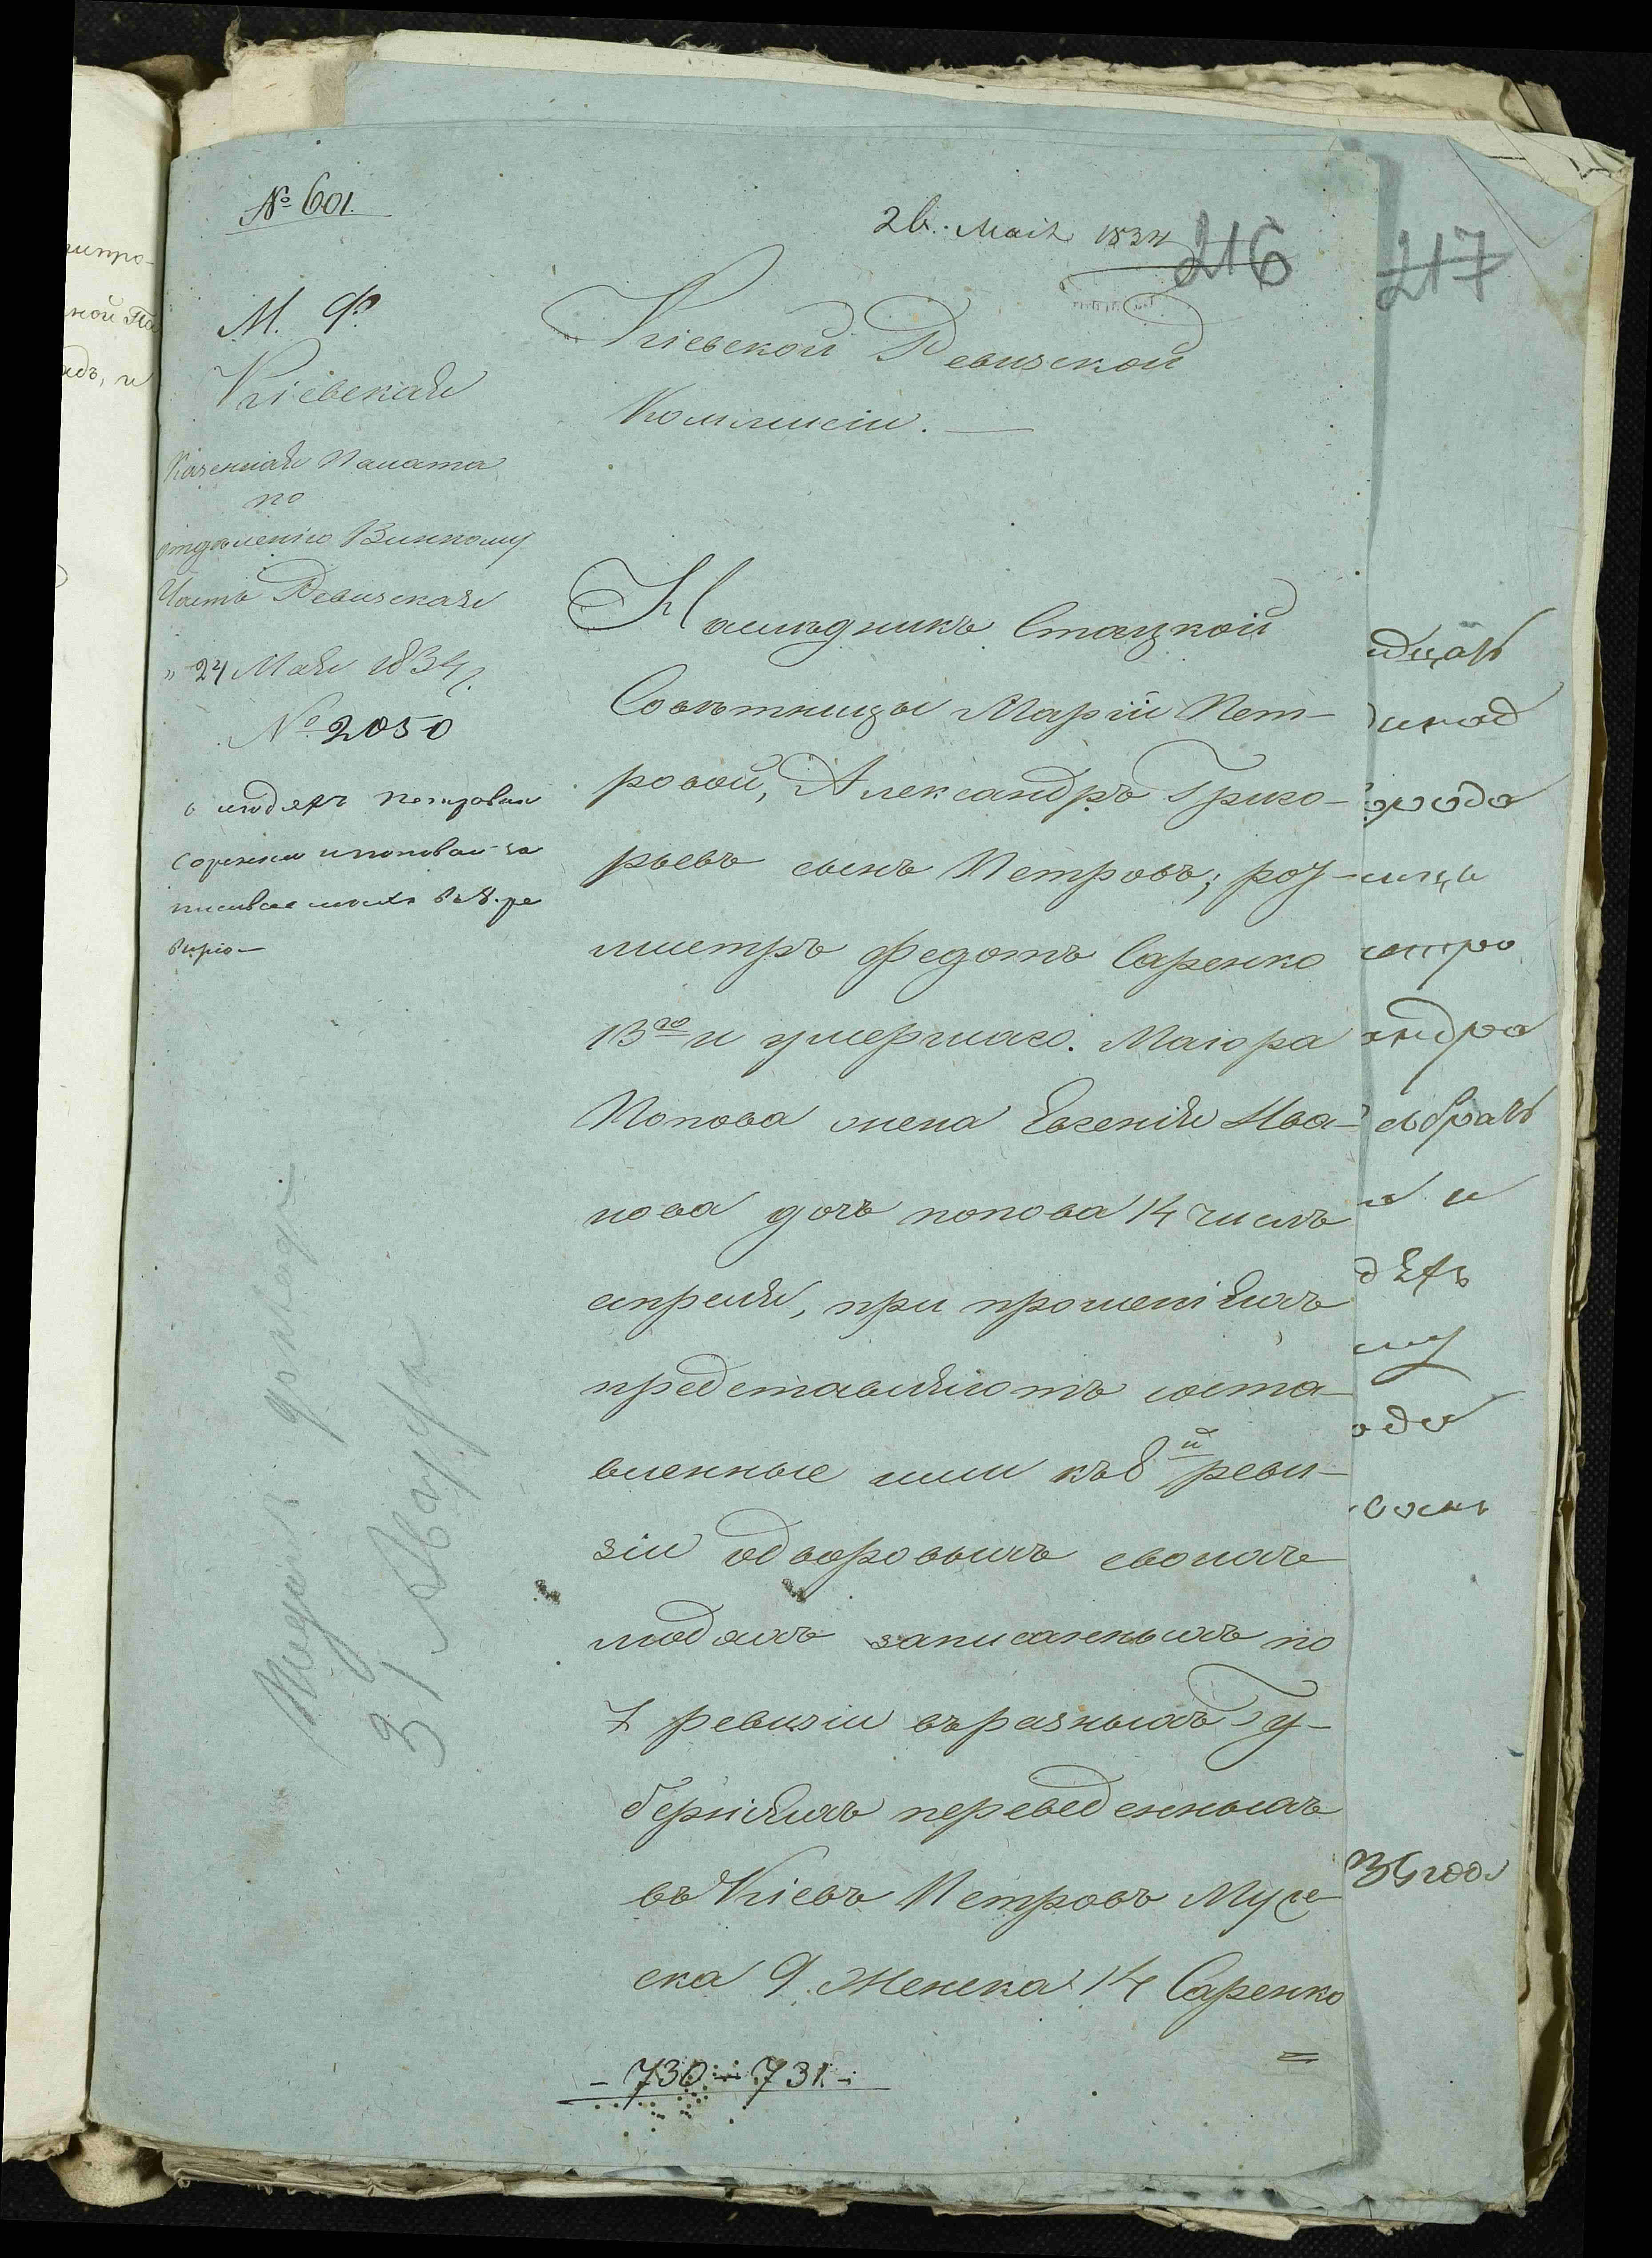 № 601.
26. Маія 1834
216
217
М. Ф.
Кіевская
Казенная Палата
по
отделенію Винному
Часть Ревизская
" 24 Мая 1834 г.
№ 2050
о людяхъ Петрова
Саренки и Поповой за
писываемыхъ въ 8. ре
визію
Кіевской Ревизской
Коммисіи.
Наследникъ Статской
Советницы Маріи Пет-
ровой, Александръ Григо-
рьевъ сынъ Петровъ; рот-
мистръ Федотъ Саренко
13го и умершаго Маіора
Попова жена Евгенія Ива-
нова дочь Попова 14 числъ
апреля, при прошеніяхъ
представляютъ соста-
вленные ими къ 8й реви-
зіи одворовыхъ своихъ
людяхъ записанныхъ по
7 ревизіи въ разныхъ Гу-
берніяхъ переведенныхъ
въ Кіевъ Петровъ Муже-
ска 9. Женска 14 Саренко
- 730 - 731 -
31 Августа